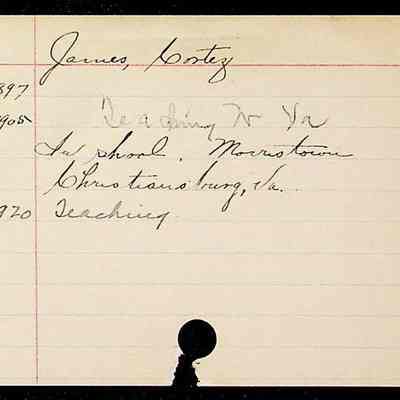 James, Cortez
897
905 Teaching W Va
In school, Morristown
Christiansburg, Va.
920 Teaching